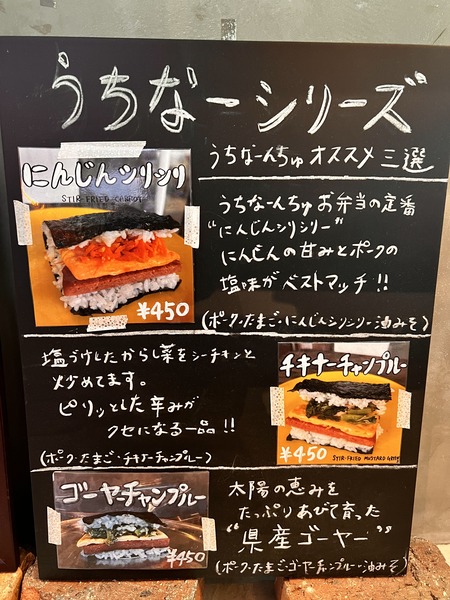 うちなーシリーズ
うちなーんちゅオススメ三選
にんじんシリシリ
STIR-FRIED CARROT
¥450
うちなーんちゅお弁当の定番
"にんじんシリシリー"
にんじんの甘みとポークの
塩味がベストマッチ!!
(ポーク・たまご・にんじんシリシリー油みそ)
塩づけしたからし菜をシーチキンと
炒めてます。
ピリッとした辛みが
クセになる一品!!
(ポーク・たまご・チキナーチャンプルー)
チキナーチャンプルー
¥450
STIR-FRIED MUSTARD GREEN
ゴーヤーチャンプルー
¥450
太陽の恵みを
たっぷりあびて育った
"県産ゴーヤー"
(ポーク・たまごゴーヤーチャンプルー・油みそ)